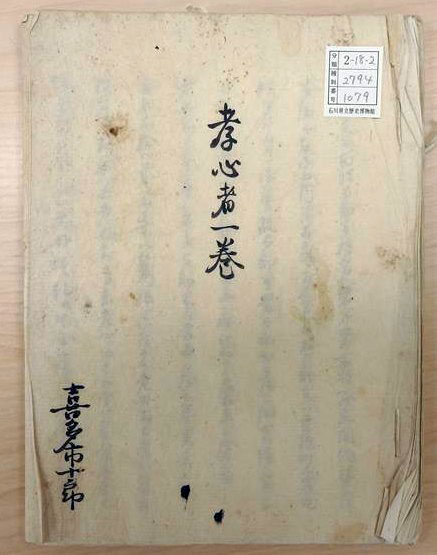 孝心者一巻
喜多市十郎
分類 2-18-2
種別 2794
番号 1079
石川県立歴史博物館